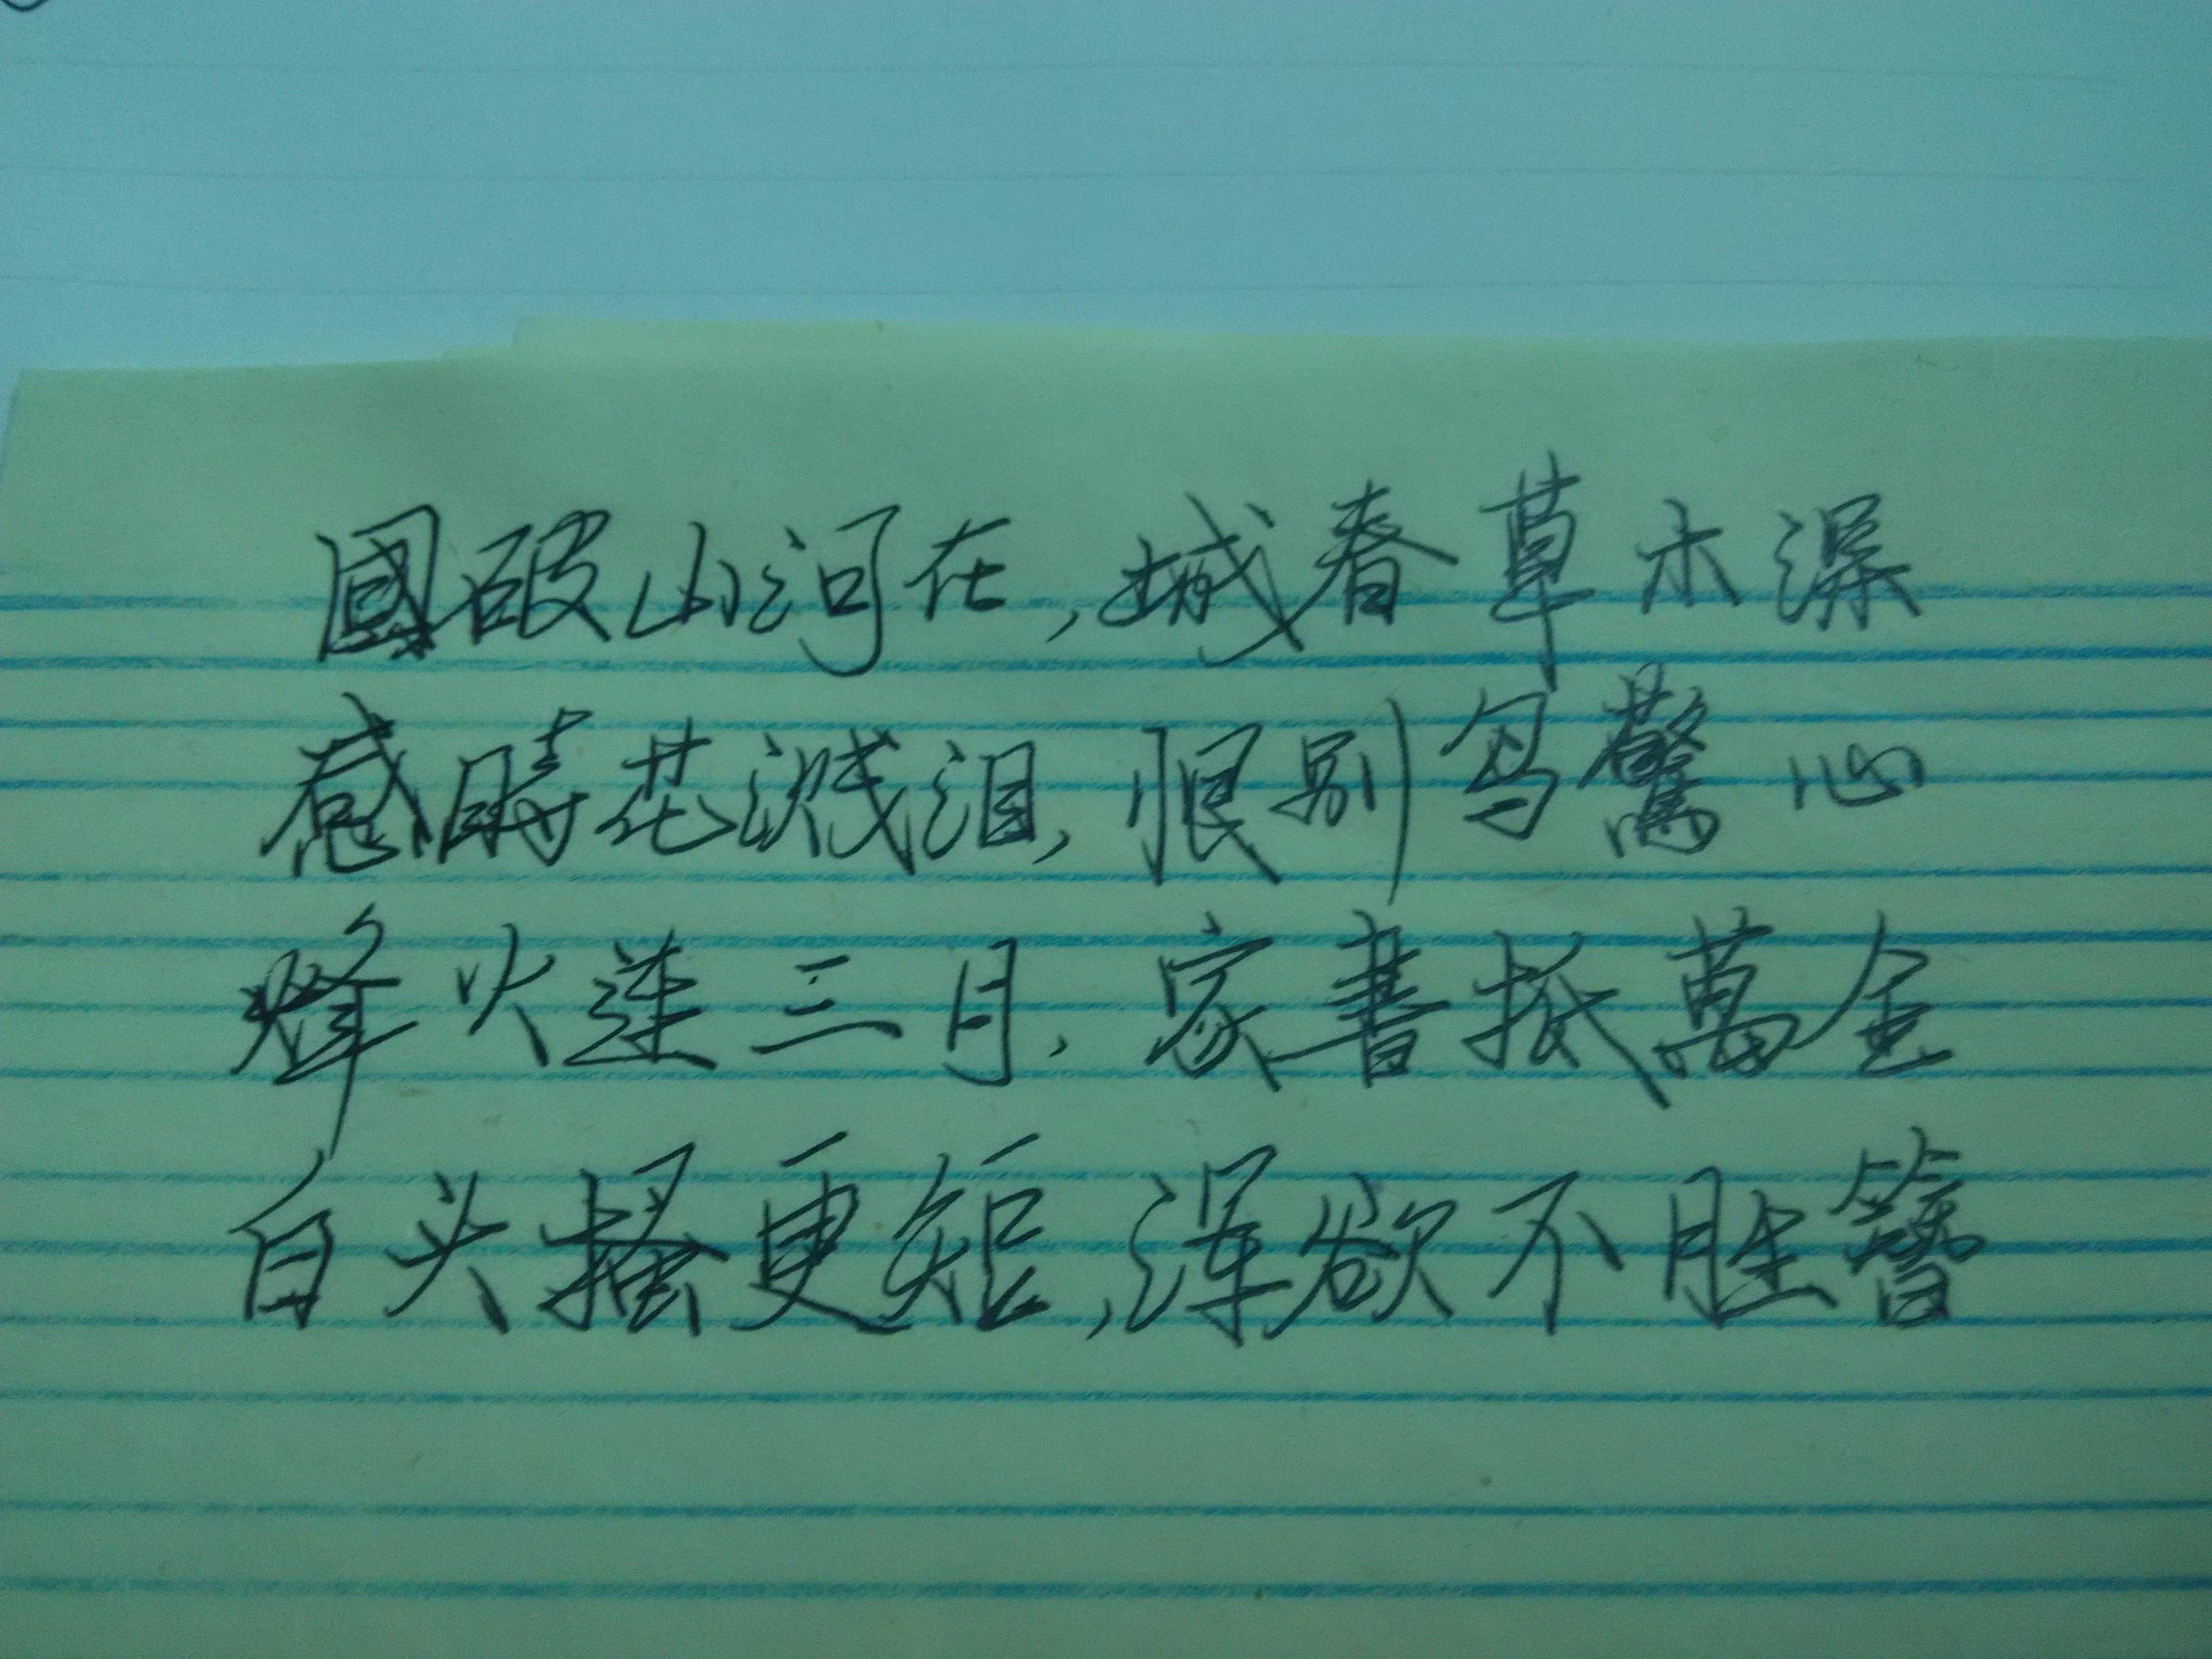 國破山河在,城春草木深
感時花溅泪,恨别鸟驚心
烽火連三月,家書抵萬金
白头搔更短,浑欲不胜簪